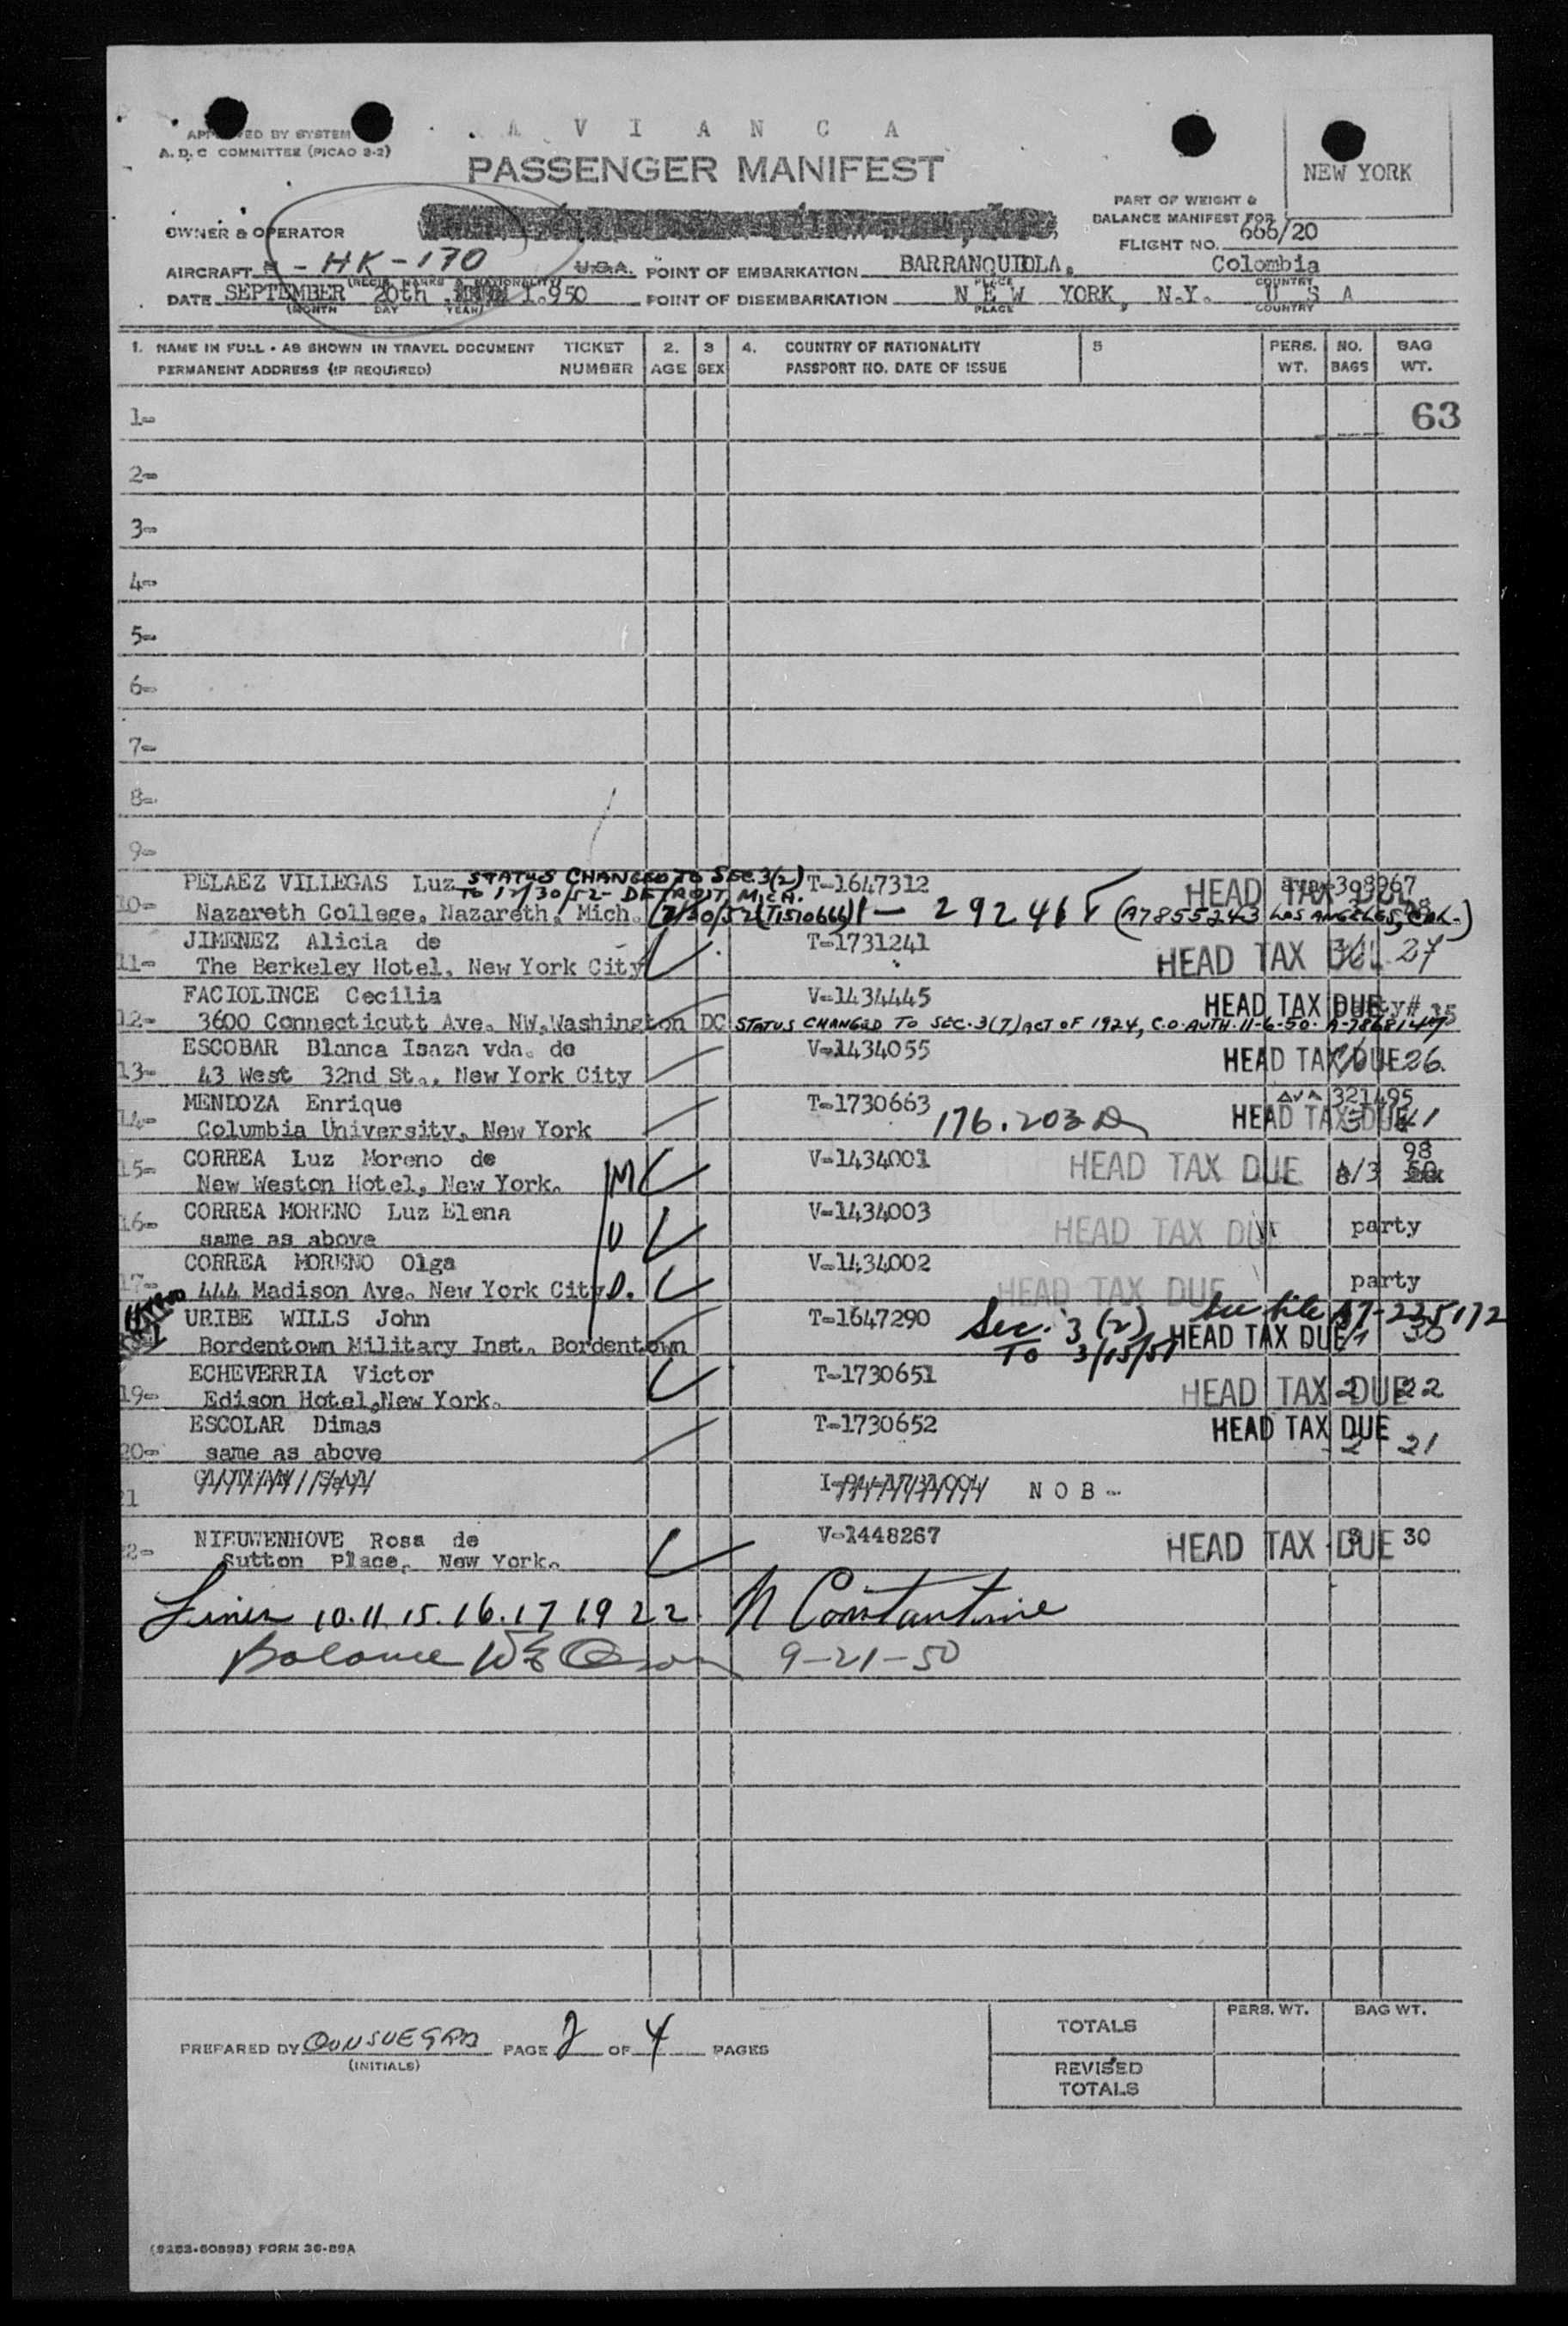 A V I A N C A
APPROVED BY SYSTEM
A. D. C COMMITTEE (PICAO 3-2)
PASSENGER MANIFEST
NEW YORK
PART OF WEIGHT &
BALANCE MANIFEST FOR
FLIGHT NO. 666/20
OWNER & OPERATOR
AIRCRAFT N - HK-170 U.S.A. POINT OF EMBARKATION BARRANQUILLA, Colombia
(REGIS. MARKS & NATIONALITY) PLACE COUNTRY
DATE SEPTEMBER 20th, 1.950 POINT OF DISEMBARKATION N E W YORK, N.Y. U S A
(MONTH DAY YEAR) PLACE COUNTRY
1. NAME IN FULL - AS SHOWN IN TRAVEL DOCUMENT TICKET 2. 3 4. COUNTRY OF NATIONALITY 5 PERS. NO. BAG
PERMANENT ADDRESS (IF REQUIRED) NUMBER AGE SEX PASSPORT NO. DATE OF ISSUE WT. BAGS WT.
1- 63
2-
3-
4-
5-
6-
7-
8-
9-
PELAEZ VILLEGAS Luz STATUS CHANGED TO SEC. 3(2) T-1647312 HEAD TAX DUE ava-308967
TO 12/30/52 - DETROIT, MICH.
10- Nazareth College, Nazareth, Mich. (7/30/52 (T1510666) 1- 292461 (A7855243 LOS ANGELES, CAL.)
JIMENEZ Alicia de T-1731241 HEAD TAX DUE 27
11- The Berkeley Hotel, New York City
FACIOLINCE Cecilia V-1434445 HEAD TAX DUE party# 35
12- 3600 Connecticutt Ave. NW, Washington DC STATUS CHANGED TO SEC. 3(7) ACT OF 1924, C.O. AUTH. 11-6-50. A-7868147
ESCOBAR Blanca Isaza vda. de V-1434055 HEAD TAX DUE 26.
13- 43 West 32nd St., New York City
MENDOZA Enrique T-1730663 176.203 HEAD TAX DUE AVA 321495
14- Columbia University, New York 3 41
CORREA Luz Moreno de V-1434001 HEAD TAX DUE A/3 98
15- New Weston Hotel, New York. M
16- CORREA MORENO Luz Elena V-1434003 HEAD TAX DUE party
same as above
CORREA MORENO Olga V-1434002 HEAD TAX DUE party
17- 444 Madison Ave. New York City.
URIBE WILLS John T-1647290 Sec. 3 (2) See file A7-225172
Bordentown Military Inst. Bordentown TO 3/15/51 HEAD TAX DUE 1 30
ECHEVERRIA Victor T-1730651 HEAD TAX DUE 2 22
19- Edison Hotel, New York.
ESCOLAR Dimas T-1730652 HEAD TAX DUE 2 21
20- same as above
21 N O B -
NIEUWENHOVE Rosa de V-1448267 HEAD TAX DUE 3 30
22- Sutton Place, New York.
Lines 10. 11. 15. 16. 17 19 22. N Constantine
Balance 9-21-50
PREPARED BY CONSUEGRA PAGE 2 OF 4 PAGES
(INITIALS)
PERS. WT. BAG WT.
TOTALS
REVISED
TOTALS
(9283-60898) FORM 36-89A